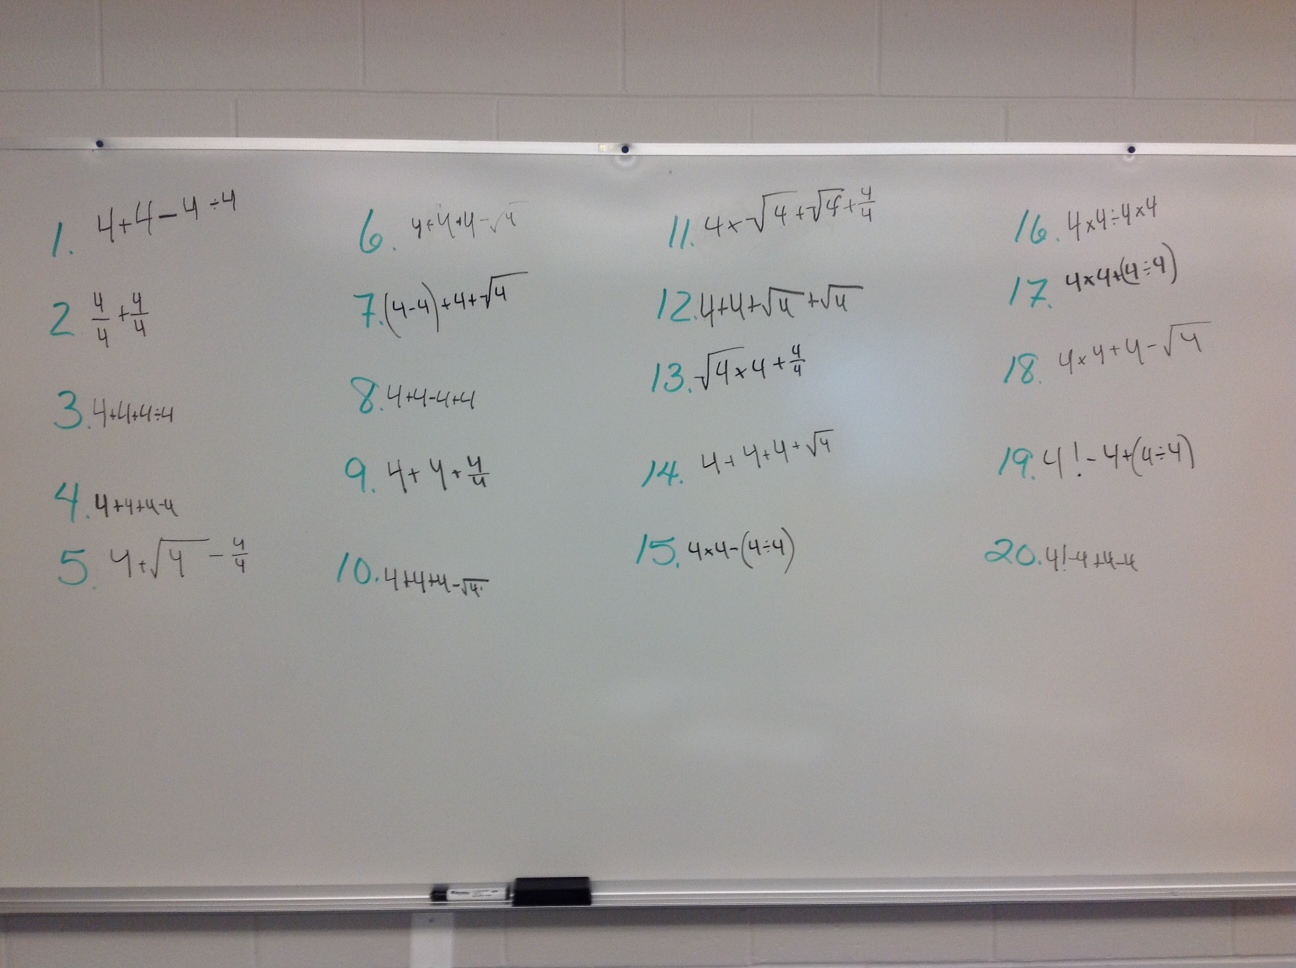 1. 4+4-4÷4
2 4/4+4/4
3. 4+4+4÷4
4. 4+4+4-4
5. 4+√4 - 4/4
6. 4+4+4-√4
7. (4-4)+4+√4
8. 4+4-4+4
9. 4+4+4/4
10. 4+4+4-√4
11. 4×√4+√4+4/4
12. 4+4+√4+√4
13. √4×4+4/4
14. 4+4+4+√4
15. 4×4-(4÷4)
16. 4×4÷4×4
17. 4×4+(4÷4)
18. 4×4+4-√4
19. 4!-4+(4÷4)
20. 4!-4+4-4